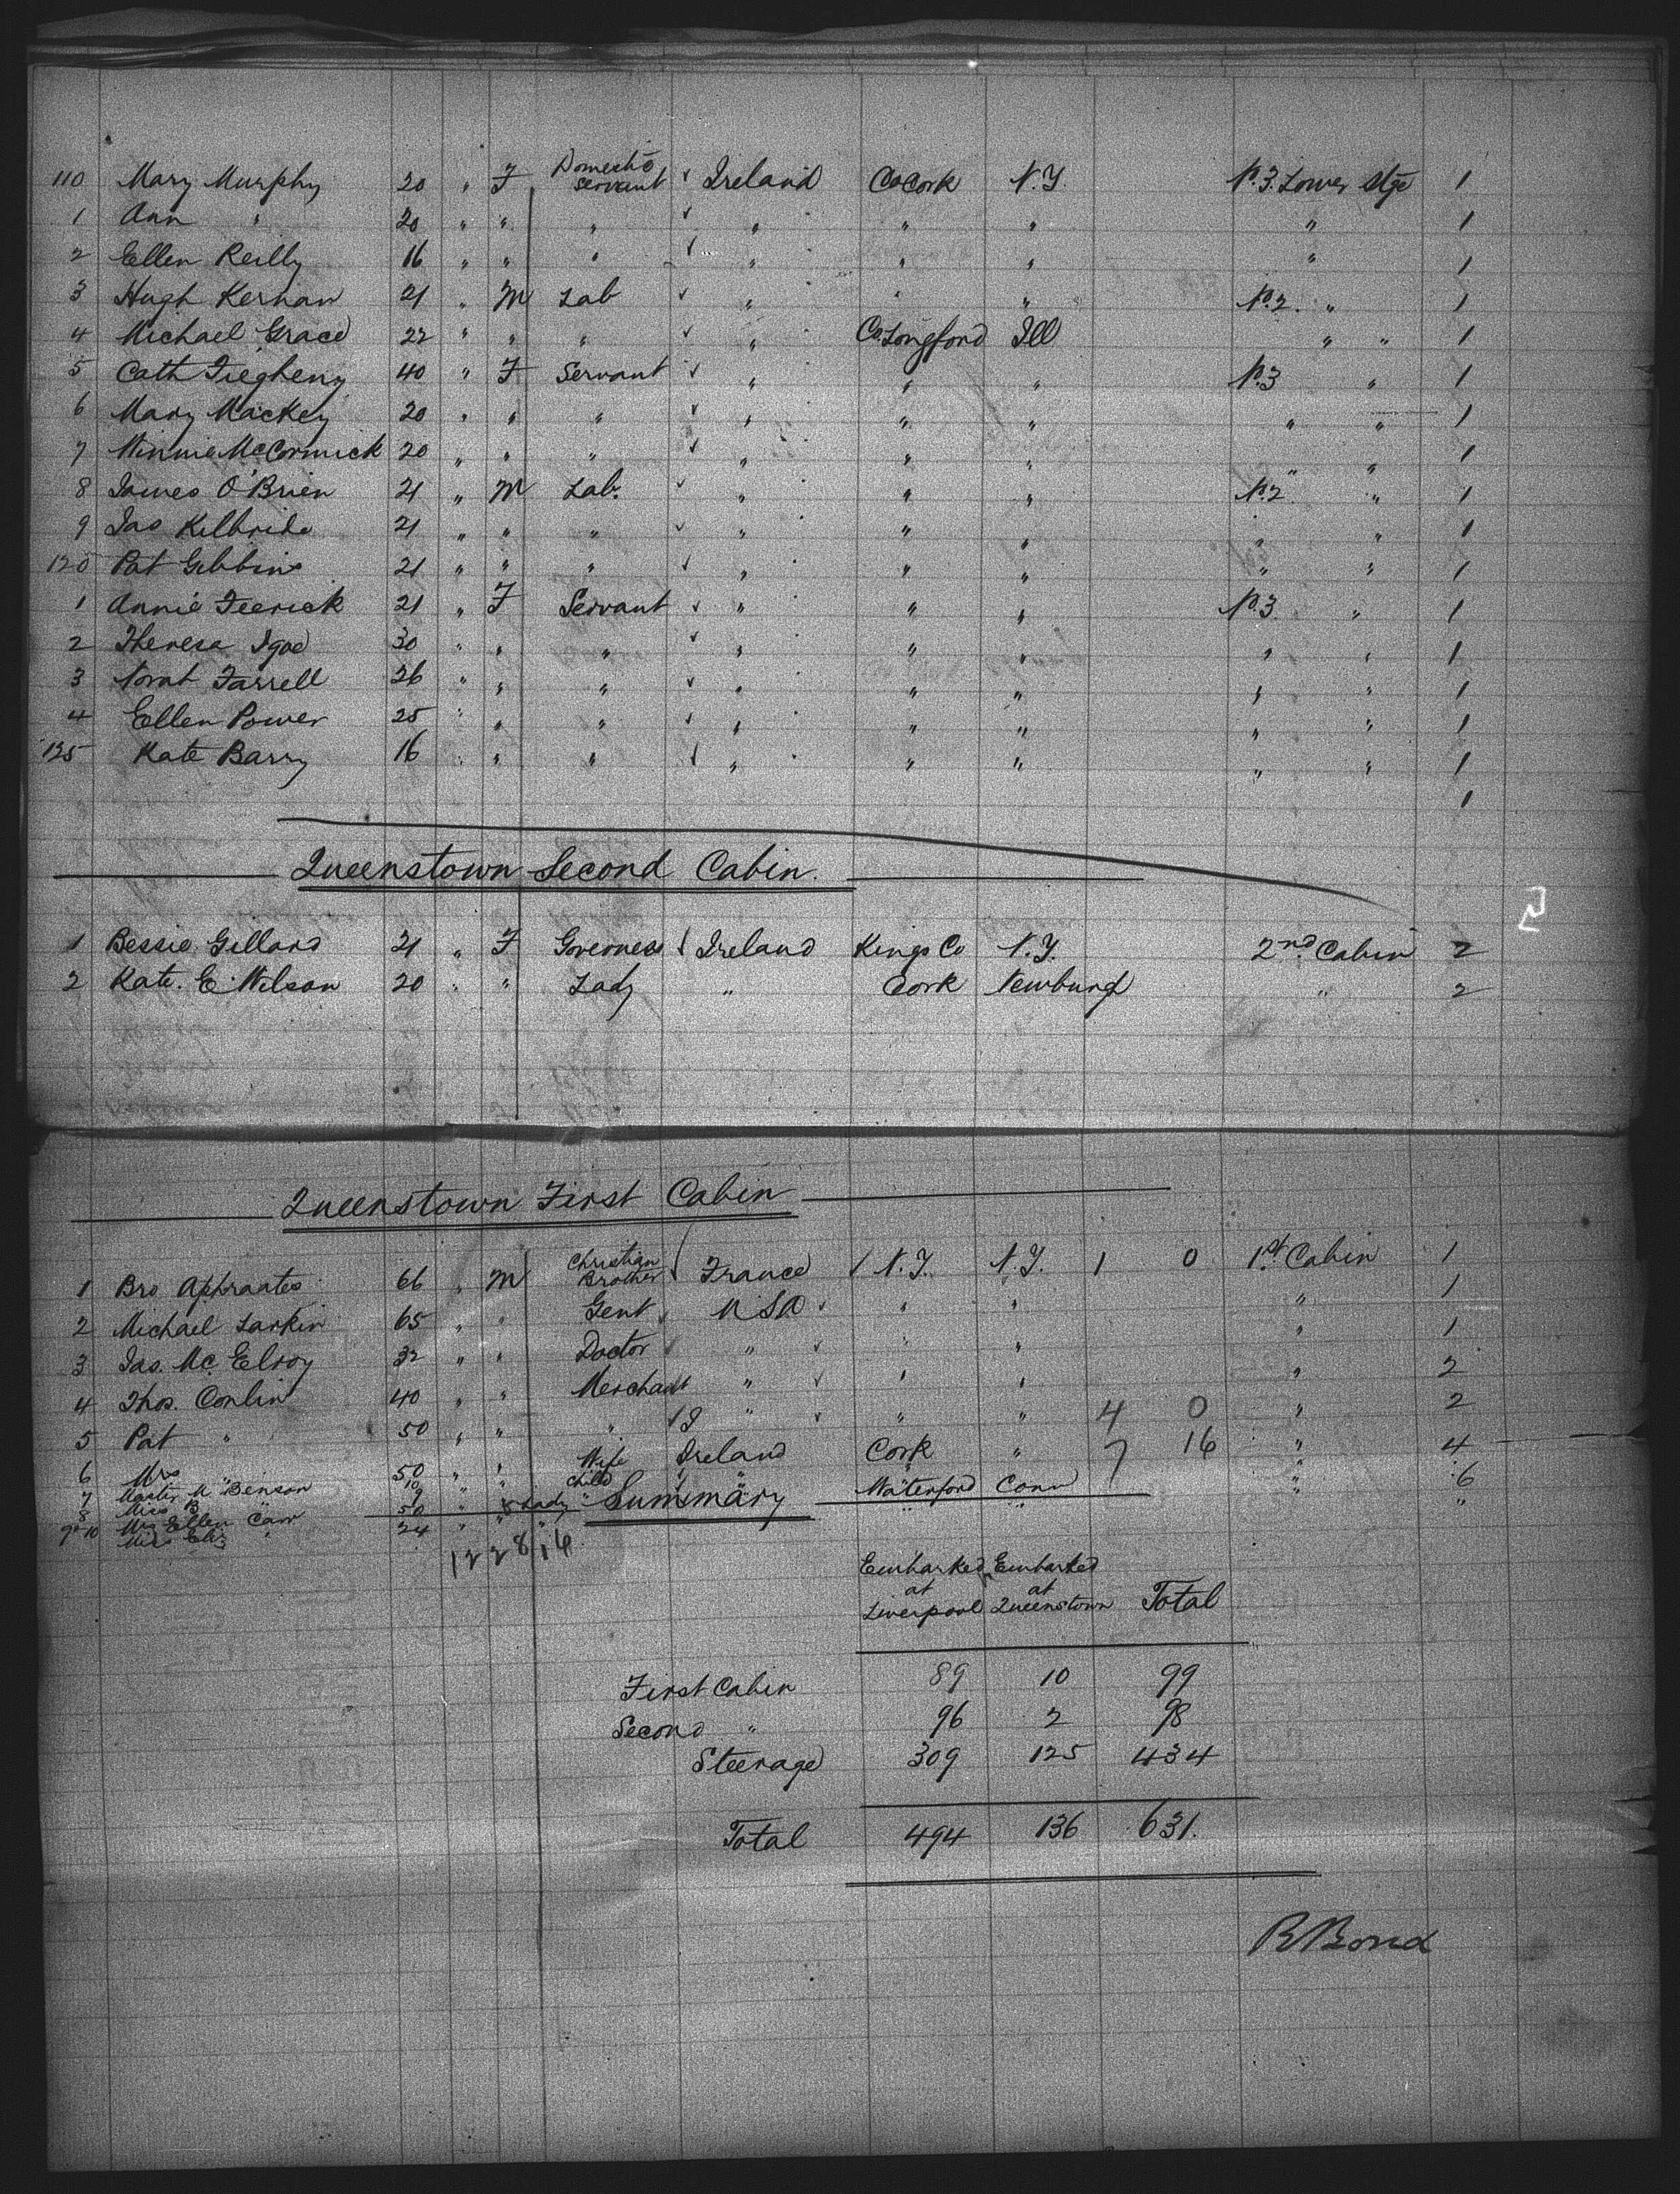 110 Mary Murphy 20 " F Domestic Servant Ireland Co Cork N.Y No. 3. Lower Stge 1
1 Ann " 20 " " " " " " " 1
2 Ellen Reilly 16 " " " " " " " 1
3 Hugh Kernan 21 " M Lab " " " No. 2. " 1
4 Michael Grace 22 " " " " Co Longford Ill " " 1
5 Cath 40 " F Servant " " " No. 3 " 1
6 Mary Mackey 20 " " " " " " " " 1
7 Minnie McCormick 20 " " " " " " " " 1
8 James O'Brien 21 " M Lab. " " " No. 2 " 1
9 Jas Kilbride 21 " " " " " " " " 1
120 Pat Gibbins 21 " " " " " " " " 1
1 Annie Feerick 21 " F Servant " " " No. 3. " 1
2 Theresa Igoe 30 " " " " " " " " 1
3 Norah Farrell 26 " " " " " " " " 1
4 Ellen Power 25 " " " " " " " " 1
125 Kate Barry 16 " " " " " " " " 1
1
Queenstown Second Cabin.
1 Bessie Gillard 21 " F Governess Ireland Kings Co N.Y. 2nd Cabin 2
2 Kate. E. Wilson 20 " " Lady " Cork Newburg " 2
Queenstown First Cabin
1 Bro Aphraates 66 " M Christian Brother France N.Y. N.Y. 1 0 1st Cabin 1
2 Michael Larkin 65 " " Gent USA " " " 1
3 Jas. McElroy 32 " " Doctor " " " " 1
4 Thos. Conlin 40 " " Merchant " " " " 2
5 Pat " 50 " " " " " " 4 0 " 2
6 Mrs " 50 " " Wife Ireland Cork " 7 16 " 4
7 Master M Benson 10 " " Child " Waterford Conn " 6
8 Miss B " 9 " " " " " " "
9 Mrs Ellen Carr 50 " " Lady
10 Miss Eliz " 24 " " "
Summary
Embarked at Liverpool Embarked at Queenstown Total
First Cabin 89 10 99
Second " 96 2 98
Steerage 309 125 434
Total 494 136 631.
R Bond